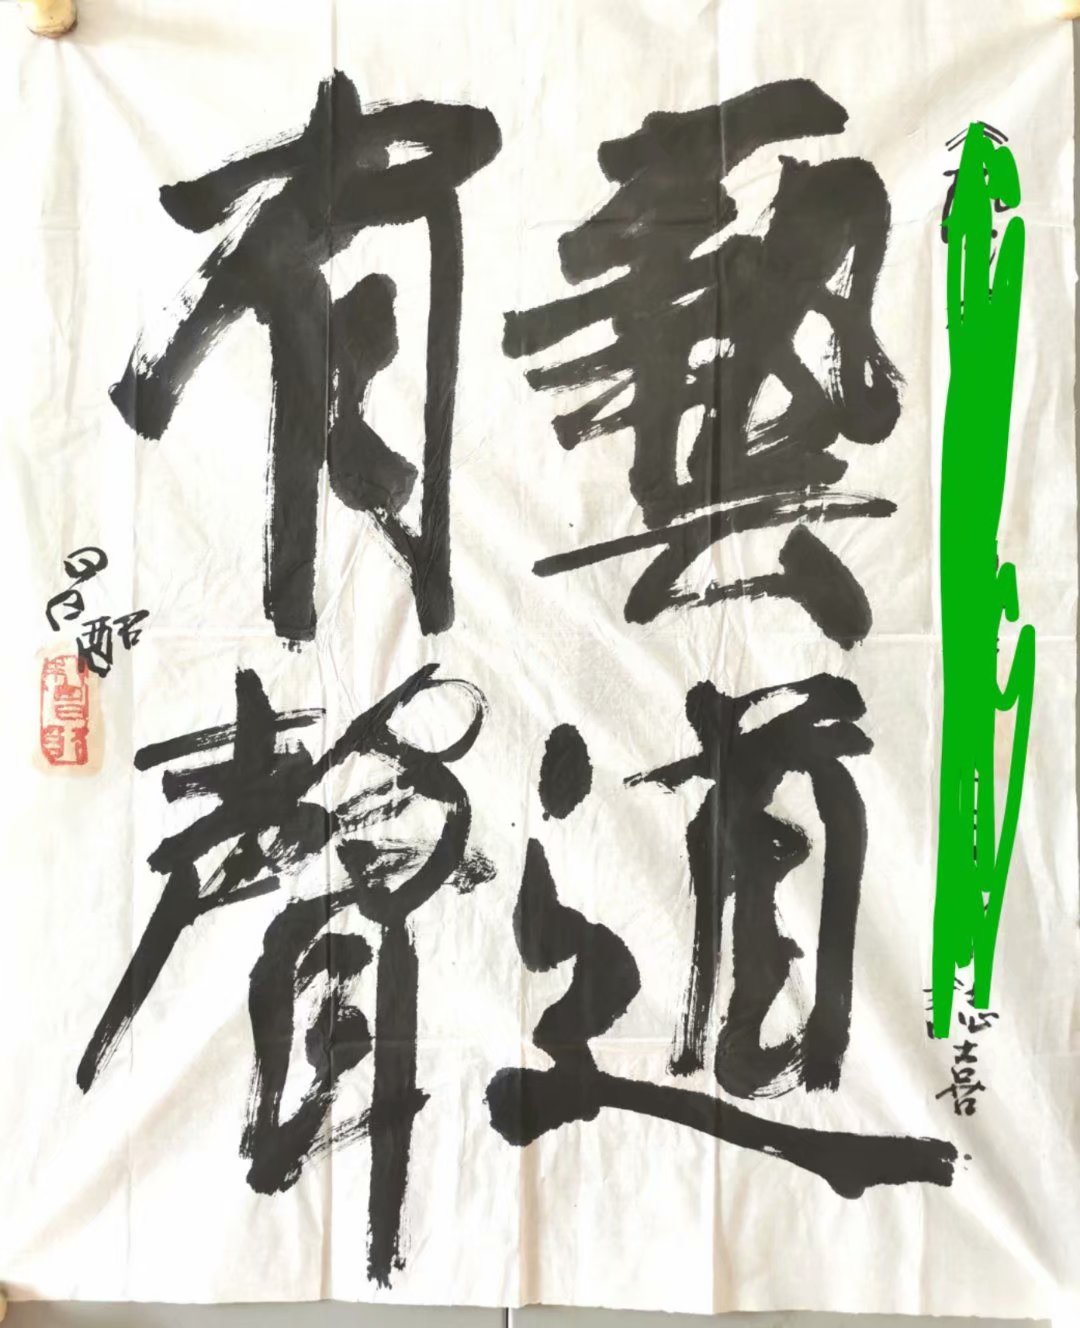 藝道
有聲
誌喜
昌酩